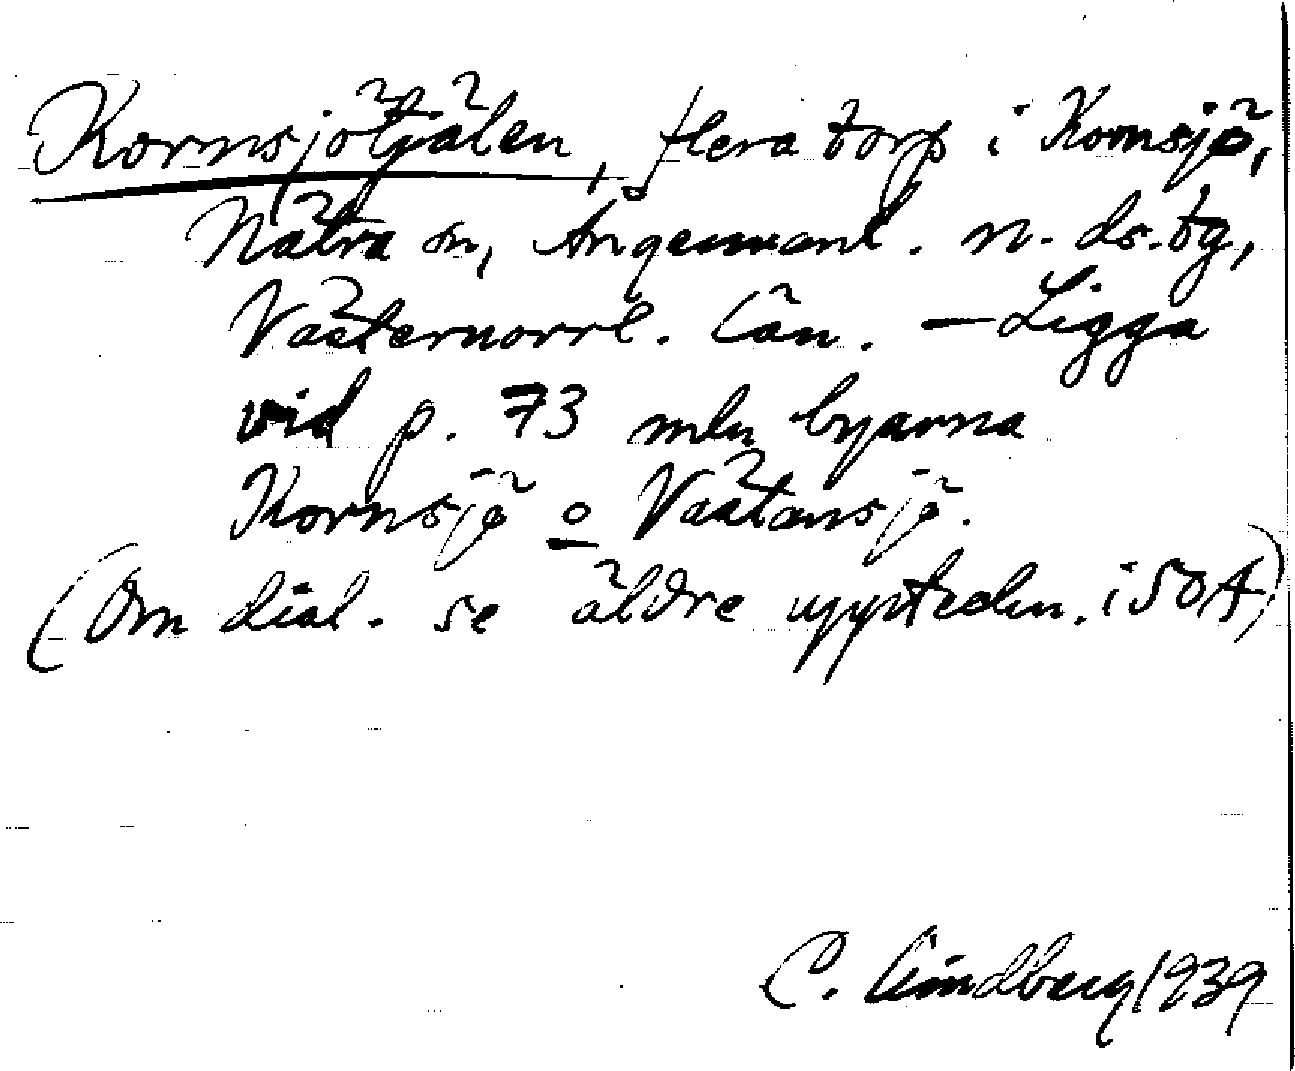 Kornsjötjälen, flera torp i Kornsjö,
Nätra sn, Ångermanl. n. ds.tg,
Västernorrl. län. – Ligga
vid p. 73 mln byarna
Kornsjö o Västansjö.
(Om dial. se äldre uppteckn. i SOA)
C. Lindberg 1939